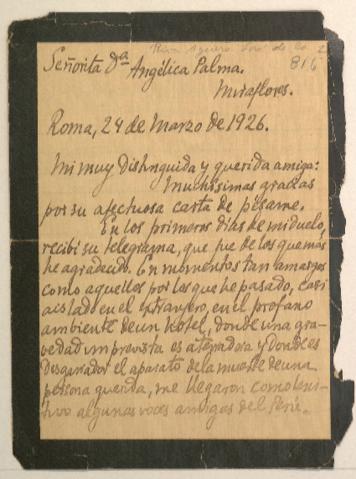 816
Señorita Dª Angélica Palma.
Miraflores.
Roma, 24 de Marzo de 1926.
Mi muy distinguida y querida amiga:
Muchísimas gracias
por su afectuosa carta de pésame.
En los primeros días de mi duelo,
recibí su telegrama, que fue de los que más
he agradecido. En momentos tan amargos
como aquellos por los que he pasado, casi
aislado en el extranjero, en el profano
ambiente de un hotel, donde una gra-
vedad imprevista es aterradora y donde es
desgarrador el aparato de la muerte de una
persona querida, me llegaron como leni-
tivo algunas voces amigas del Perú.